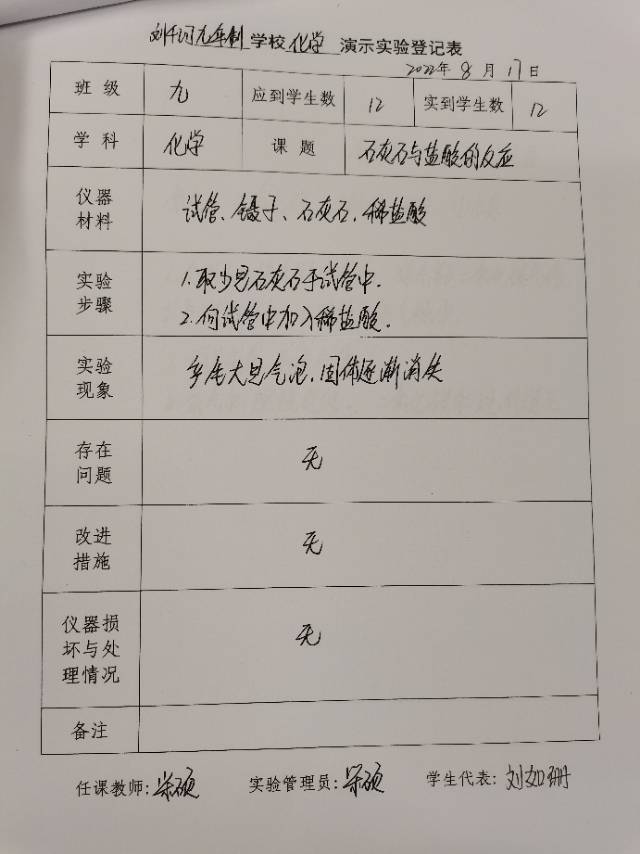 刘千河九年制学校化学 演示实验登记表
2022年 8 月 17 日
班 级 九 应到学生数 12 实到学生数 12
学 科 化学 课 题 石灰石与盐酸的反应
仪器
材料
试管、镊子、石灰石、稀盐酸
实验
步骤
1.取少量石灰石于试管中.
2.向试管中加入稀盐酸.
实验
现象
产生大量气泡,固体逐渐消失
存在
问题
无
改进
措施
无
仪器损
坏与处
理情况
无
备注
任课教师: 实验管理员: 学生代表: 刘如珊